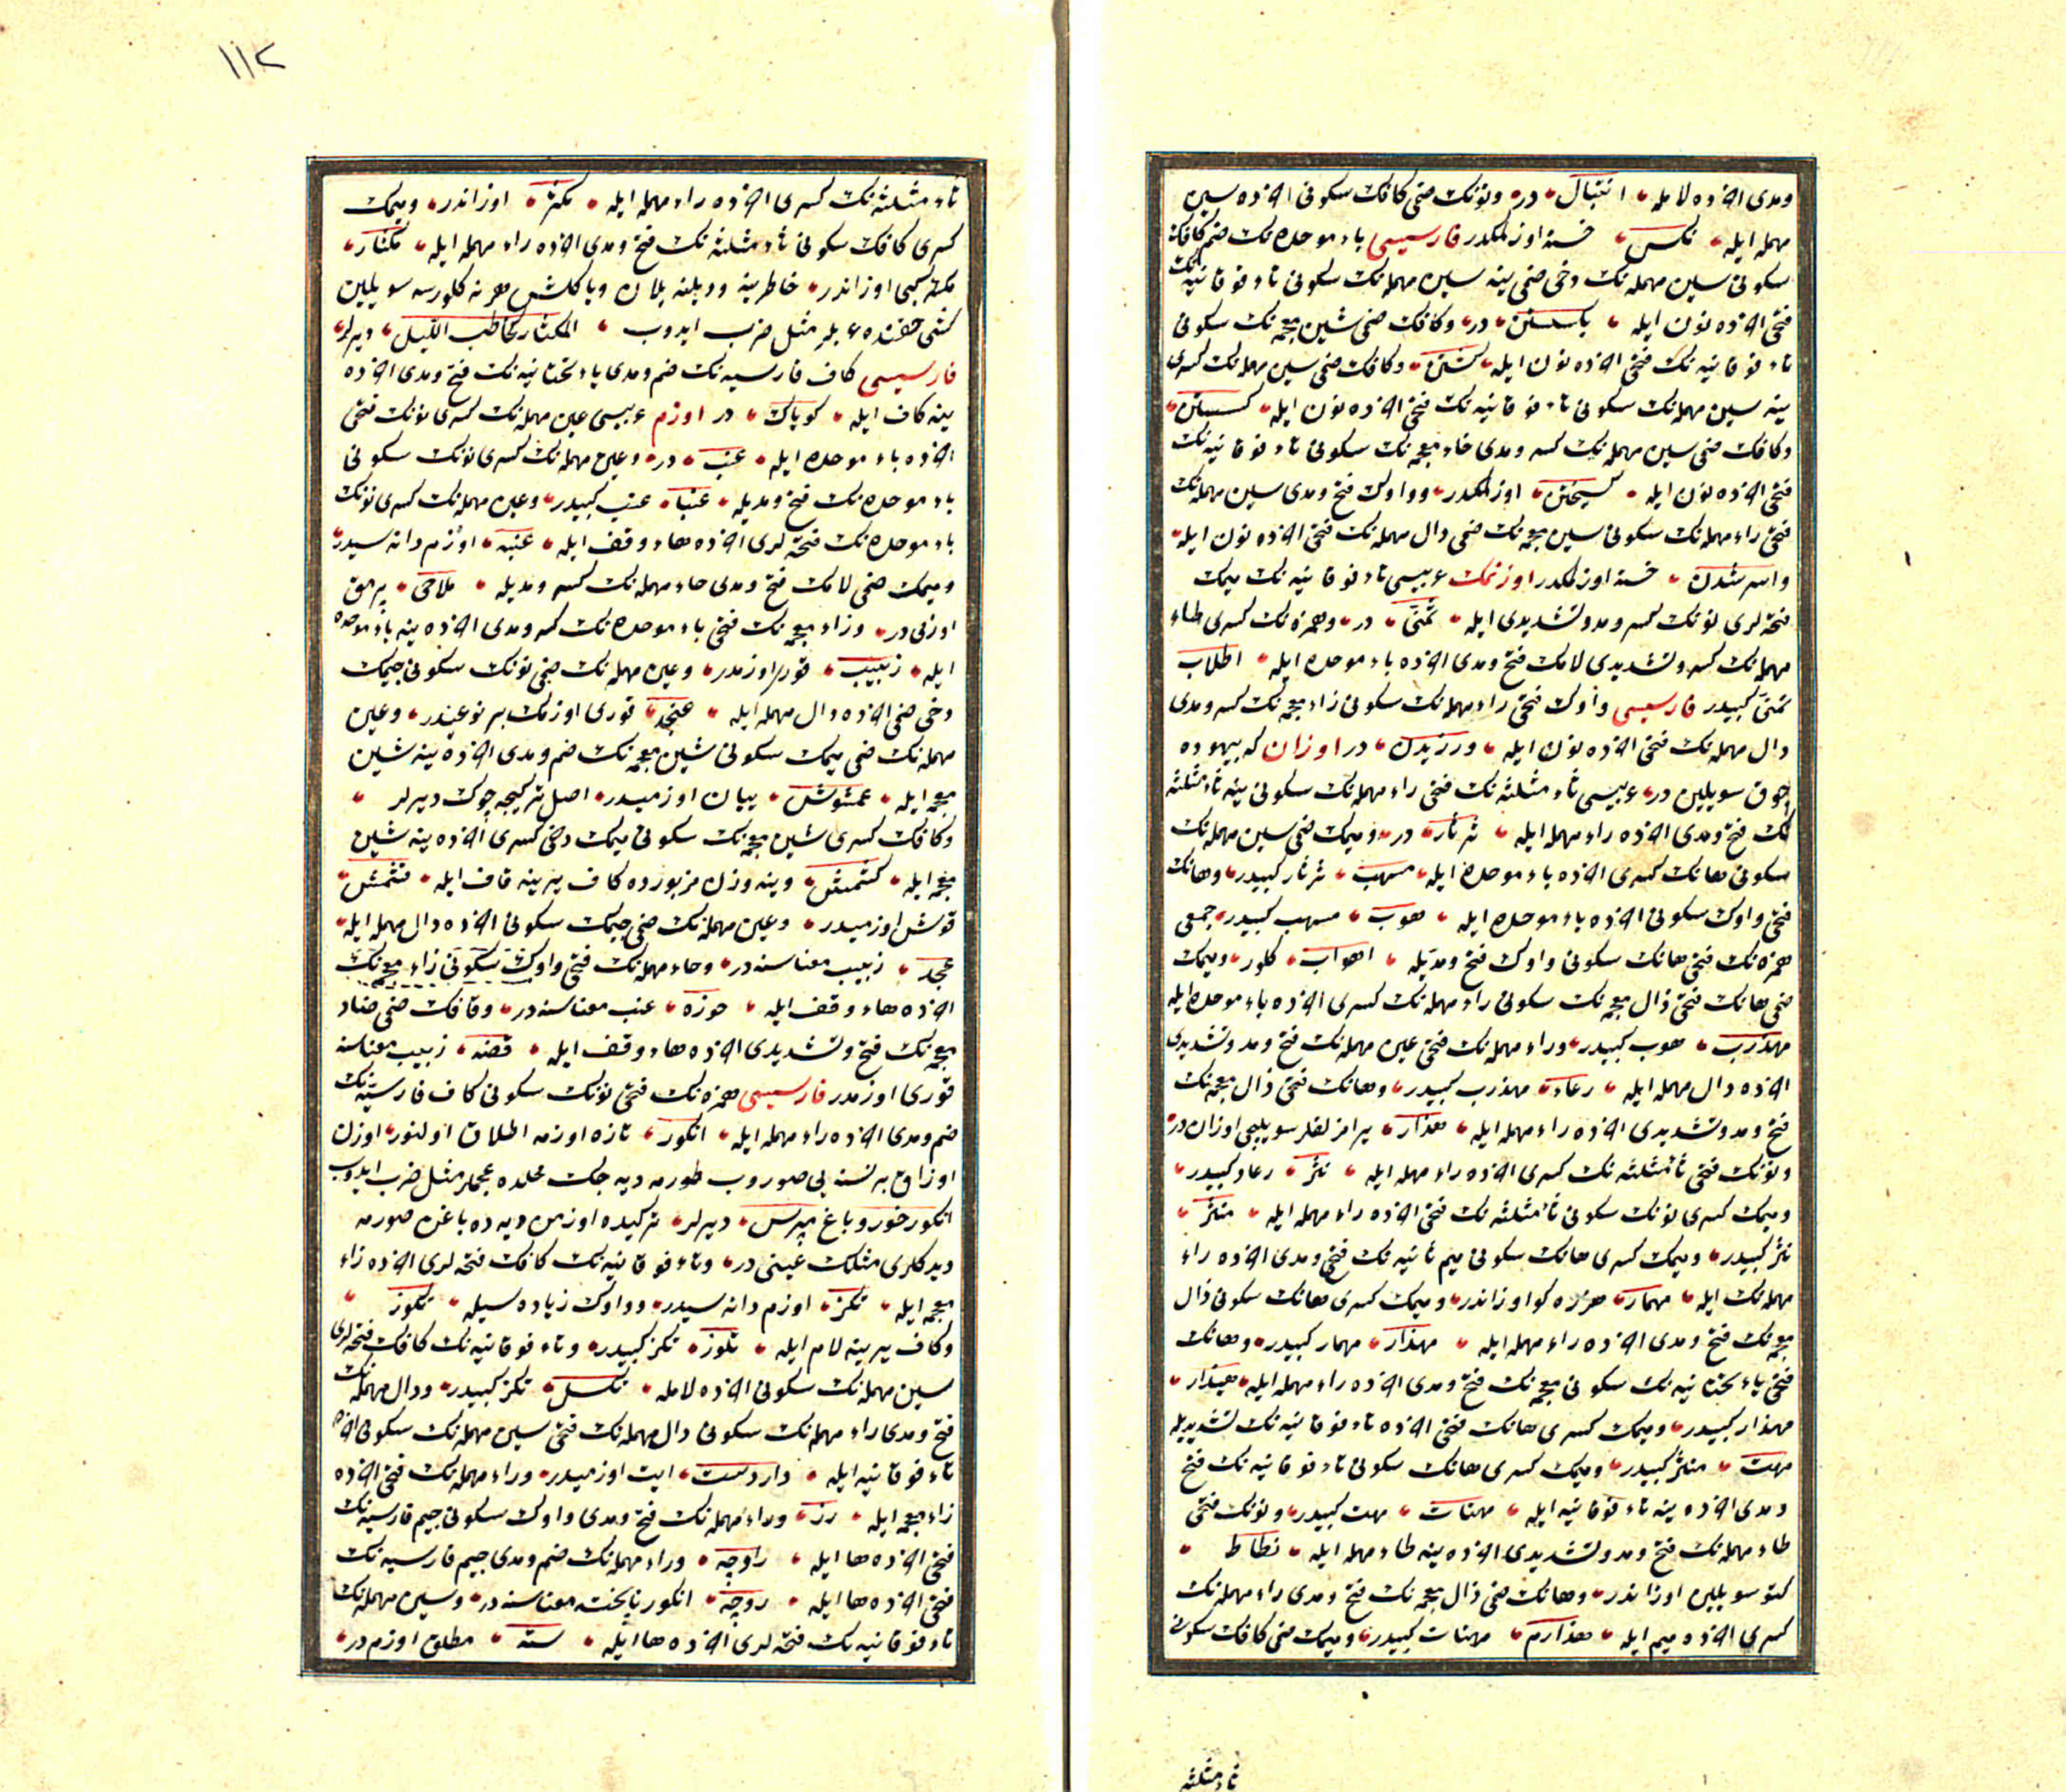 ومدی اخرده لامله، انتبال، در، ونونك ضمی كافك سكونی اخرده سین
مهمله ایله، نكس، خسته اوزلمكدر فارسیسی باء موحده نك ضم كافك
سكونی سین مهمله نك دخی ضمی ینه سین مهمله نك سكونی تاء فوقانیه نك
فتحی اخرده نون ایله، در، وكافك ضمی شین معجمه نك سكونی
تاء فوقانیه نك فتحی اخرده نون ایله، كشتن، وكافك ضمی سین مهمله نك كسری
ینه سین مهمله نك سكونی تاء فوقانیه نك فتحی اخرده نون ایله، كسستن،
وكافك ضمی سین مهمله نك كسر ومدی خاء معجمه نك سكونی تاء فوقانیه نك
فتحی اخرده نون ایله، كسیختن، اوزلمكدر، وواوك فتح ومدی سین مهمله نك
فتحی راء مهمله نك سكونی شین معجمه نك ضمی دال مهمله نك فتحی اخرده نون ایله،
واسرشدن، خسته اوزلمكدر اوزنمك عربیسی تاء فوقانیه نك میمك
فتحه لری نونك كسر ومد وتشدیدی ایله، تمنی، در، وهمزه نك كسری طاء
مهمله نك كسر وتشدیدی لامك فتح ومدی اخرده باء موحده ایله، اطلاب
تمنی كبیدر فارسیسی واوك فتحی راء مهمله نك سكونی زاء معجمه نك كسر ومدی
دال مهمله نك فتحی اخرده نون ایله، ورزیدن، در اوزان كه بیهوده
چوق سویلین در، عربیسی ثاء مثلثه نك فتحی راء مهمله نك سكونی ینه ثاء مثلثه
نك فتح ومدی اخرده راء مهمله ایله، ثرثار، در، ومیمك ضمی سین مهمله نك
سكونی هانك كسری اخرده باء موحده ایله، مسهب، ثرثار كبیدر، وهانك
فتحی واوك سكونی اخرده باء موحده ایله، هوب، مسهب كبیدر، جمعی
همزه نك فتحی هانك سكونی واوك فتح ومدیله، اهواب، كلور، ومیمك
ضمی هانك فتحی ذال معجمه نك سكونی راء مهمله نك كسری اخرده باء موحده ایله
مهذرب، هوب كبیدر، وراء مهمله نك فتحی عین مهمله نك فتح ومد وتشدیدی
اخرده دال مهمله ایله، رعاد، مهذرب كبیدر، وهانك فتحی ذال معجمه نك
فتح ومد وتشدیدی اخرده راء مهمله ایله، هذار، یرامز لفلر سویلیجی اوزان در،
ونونك فتحی ثاء مثلثه نك كسری اخرده راء مهمله ایله، نثر، رعاد كبیدر،
ومیمك كسری نونك سكونی ثاء مثلثه نك فتحی اخرده راء مهمله ایله، منثر،
نثر كبیدر، ومیمك كسری هانك سكونی میم ثانیه نك فتح ومدی اخرده راء
مهمله نك ایله، مهمار، هرزه كو اوزاندر، ومیمك كسری هانك سكونی ذال
معجمه نك فتح ومدی اخرده راء مهمله ایله، مهذار، مهمار كبیدر، وهانك
فتحی یاء تحتانیه نك سكونی معجمه نك فتح ومدی اخرده راء مهمله ایله، هیذار،
مهذار كبیدر، ومیمك كسری هانك فتحی اخرده تاء فوقانیه نك تشدیدیله
مهت، منثر كبیدر، ومیمك كسری هانك سكونی تاء فوقانیه نك فتح
ومدی اخرده ینه تاء فوقانیه ایله، مهتات، مهت كبیدر، ونونك فتحی
طاء مهمله نك فتح ومد وتشدیدی اخرده ینه طاء مهمله ایله، نطاط،
كتو سویلین اوزاندر، وهانك ضمی ذال معجمه نك فتح ومدی راء مهمله نك
كسری اخرده میم ایله، هذارم، مهتات كبیدر، ومیمك ضمی كافك سكونی
ثاء مثلثه
١١٢
ثاء مثلثه نك كسری اخرده راء مهمله ایله، مكثر، اوزاندر، ومیمك
كسری كافك سكونی ثاء مثلثه نك فتح ومدی اخرده راء مهمله ایله، مكثار،
مكثر كبی اوزاندر، خاطرینه ودیلنه یلان ویاكلش هرنه كلورسه سویلین
كشی حقنده عربلر مثل ضرب ایدوب، المكثار كحاطب اللیل، دیرلر،
فارسیسی كاف فارسیه نك ضم ومدی یاء تحتانیه نك فتح ومدی اخرده
ینه كاف ایله، كویاك، در اوزم عربیسی عین مهمله نك كسری نونك فتحی
اخرده باء موحده ایله، عنب، در، وعین مهمله نك كسری نونك سكونی
باء موحده نك فتح ومدیله، عنبا، عنب كبیدر، وعین مهمله نك كسری نونك
باء موحده نك فتحه لری اخرده هاء وقف ایله، عنبه، اوزم دانه سیدر،
ومیمك ضمی لامك فتح ومدی حاء مهمله نك كسر ومدیله، ملاحی، پرمق
اوزنی در، وزاء معجمه نك فتحی باء موحده نك كسر ومدی اخرده ینه باء موحده
ایله، زبیب، قوری اوزمدر، وعین مهمله نك ضمی نونك سكونی جیمك
دخی ضمی اخرده دال مهمله ایله، عنجد، قوری اوزمك بر نوعیدر، وعین
مهمله نك ضمی میمك سكونی شین معجمه نك ضم ومدی اخرده ینه شین
معجمه ایله، عمشوش، یبان اوزمیدر، اصل تركیجه چوك دیرلر،
وكافك كسری شین معجمه نك سكونی میمك دخی كسری اخرده ینه شین
معجمه ایله، كشمش، وینه وزن مزبورده كاف یرینه قاف ایله، قشمش،
قوش اوزمیدر، وعین مهمله نك ضمی جیمك سكونی اخرده دال مهمله ایله،
عجد، زبیب معناسنه در، وحاء مهمله نك فتحی واوك سكونی زاء معجمه نك
اخرده هاء وقف ایله، حوزه، عنب معناسنه در، وقافك ضمی ضاد
معجمه نك فتح وتشدیدی اخرده هاء وقف ایله، قضه، زبیب معناسنه
قوری اوزمدر فارسیسی همزه نك فتحی نونك سكونی كاف فارسیه نك
ضم ومدی اخرده راء مهمله ایله، انكور، تازه اوزمه اطلاق اولنور، اوزن
اوزاق بر نسنه یی صوروب طورمه دیه جك محلده عجملر مثل ضرب ایدوب
انكور خور و باغ مپرس، دیرلر، تركیده اوزمن ییه ده باغن صورمه
دیدكلری مثلك عینی در، وتاء فوقانیه نك كافك فتحه لری اخرده زاء
معجمه ایله، تكز، اوزم دانه سیدر، وواوك زیاده سیله، تكوز،
وكاف یرینه لام ایله، تلوز، تكز كبیدر، وتاء فوقانیه نك كافك فتحه لری
سین مهمله نك سكونی اخرده لامله، تكسل، تكز كبیدر، ودال مهمله نك
فتح ومدی راء مهمله نك سكونی دال مهمله نك فتحی سین مهمله نك سكونی اخرده
تاء فوقانیه ایله، داردست، ایت اوزمیدر، وراء مهمله نك فتحی اخرده
زاء معجمه ایله، رز، وراء مهمله نك فتح ومدی واوك سكونی جیم فارسیه نك
فتحی اخرده ها ایله، راوچه، وراء مهمله نك ضم ومدی جیم فارسیه نك
فتحی اخرده ها ایله، روچه، انكور نا پخته معناسنه در، وسین مهمله نك
تاء فوقانیه نك فتحه لری اخرده ها ایله، سته، مطلق اوزم در،